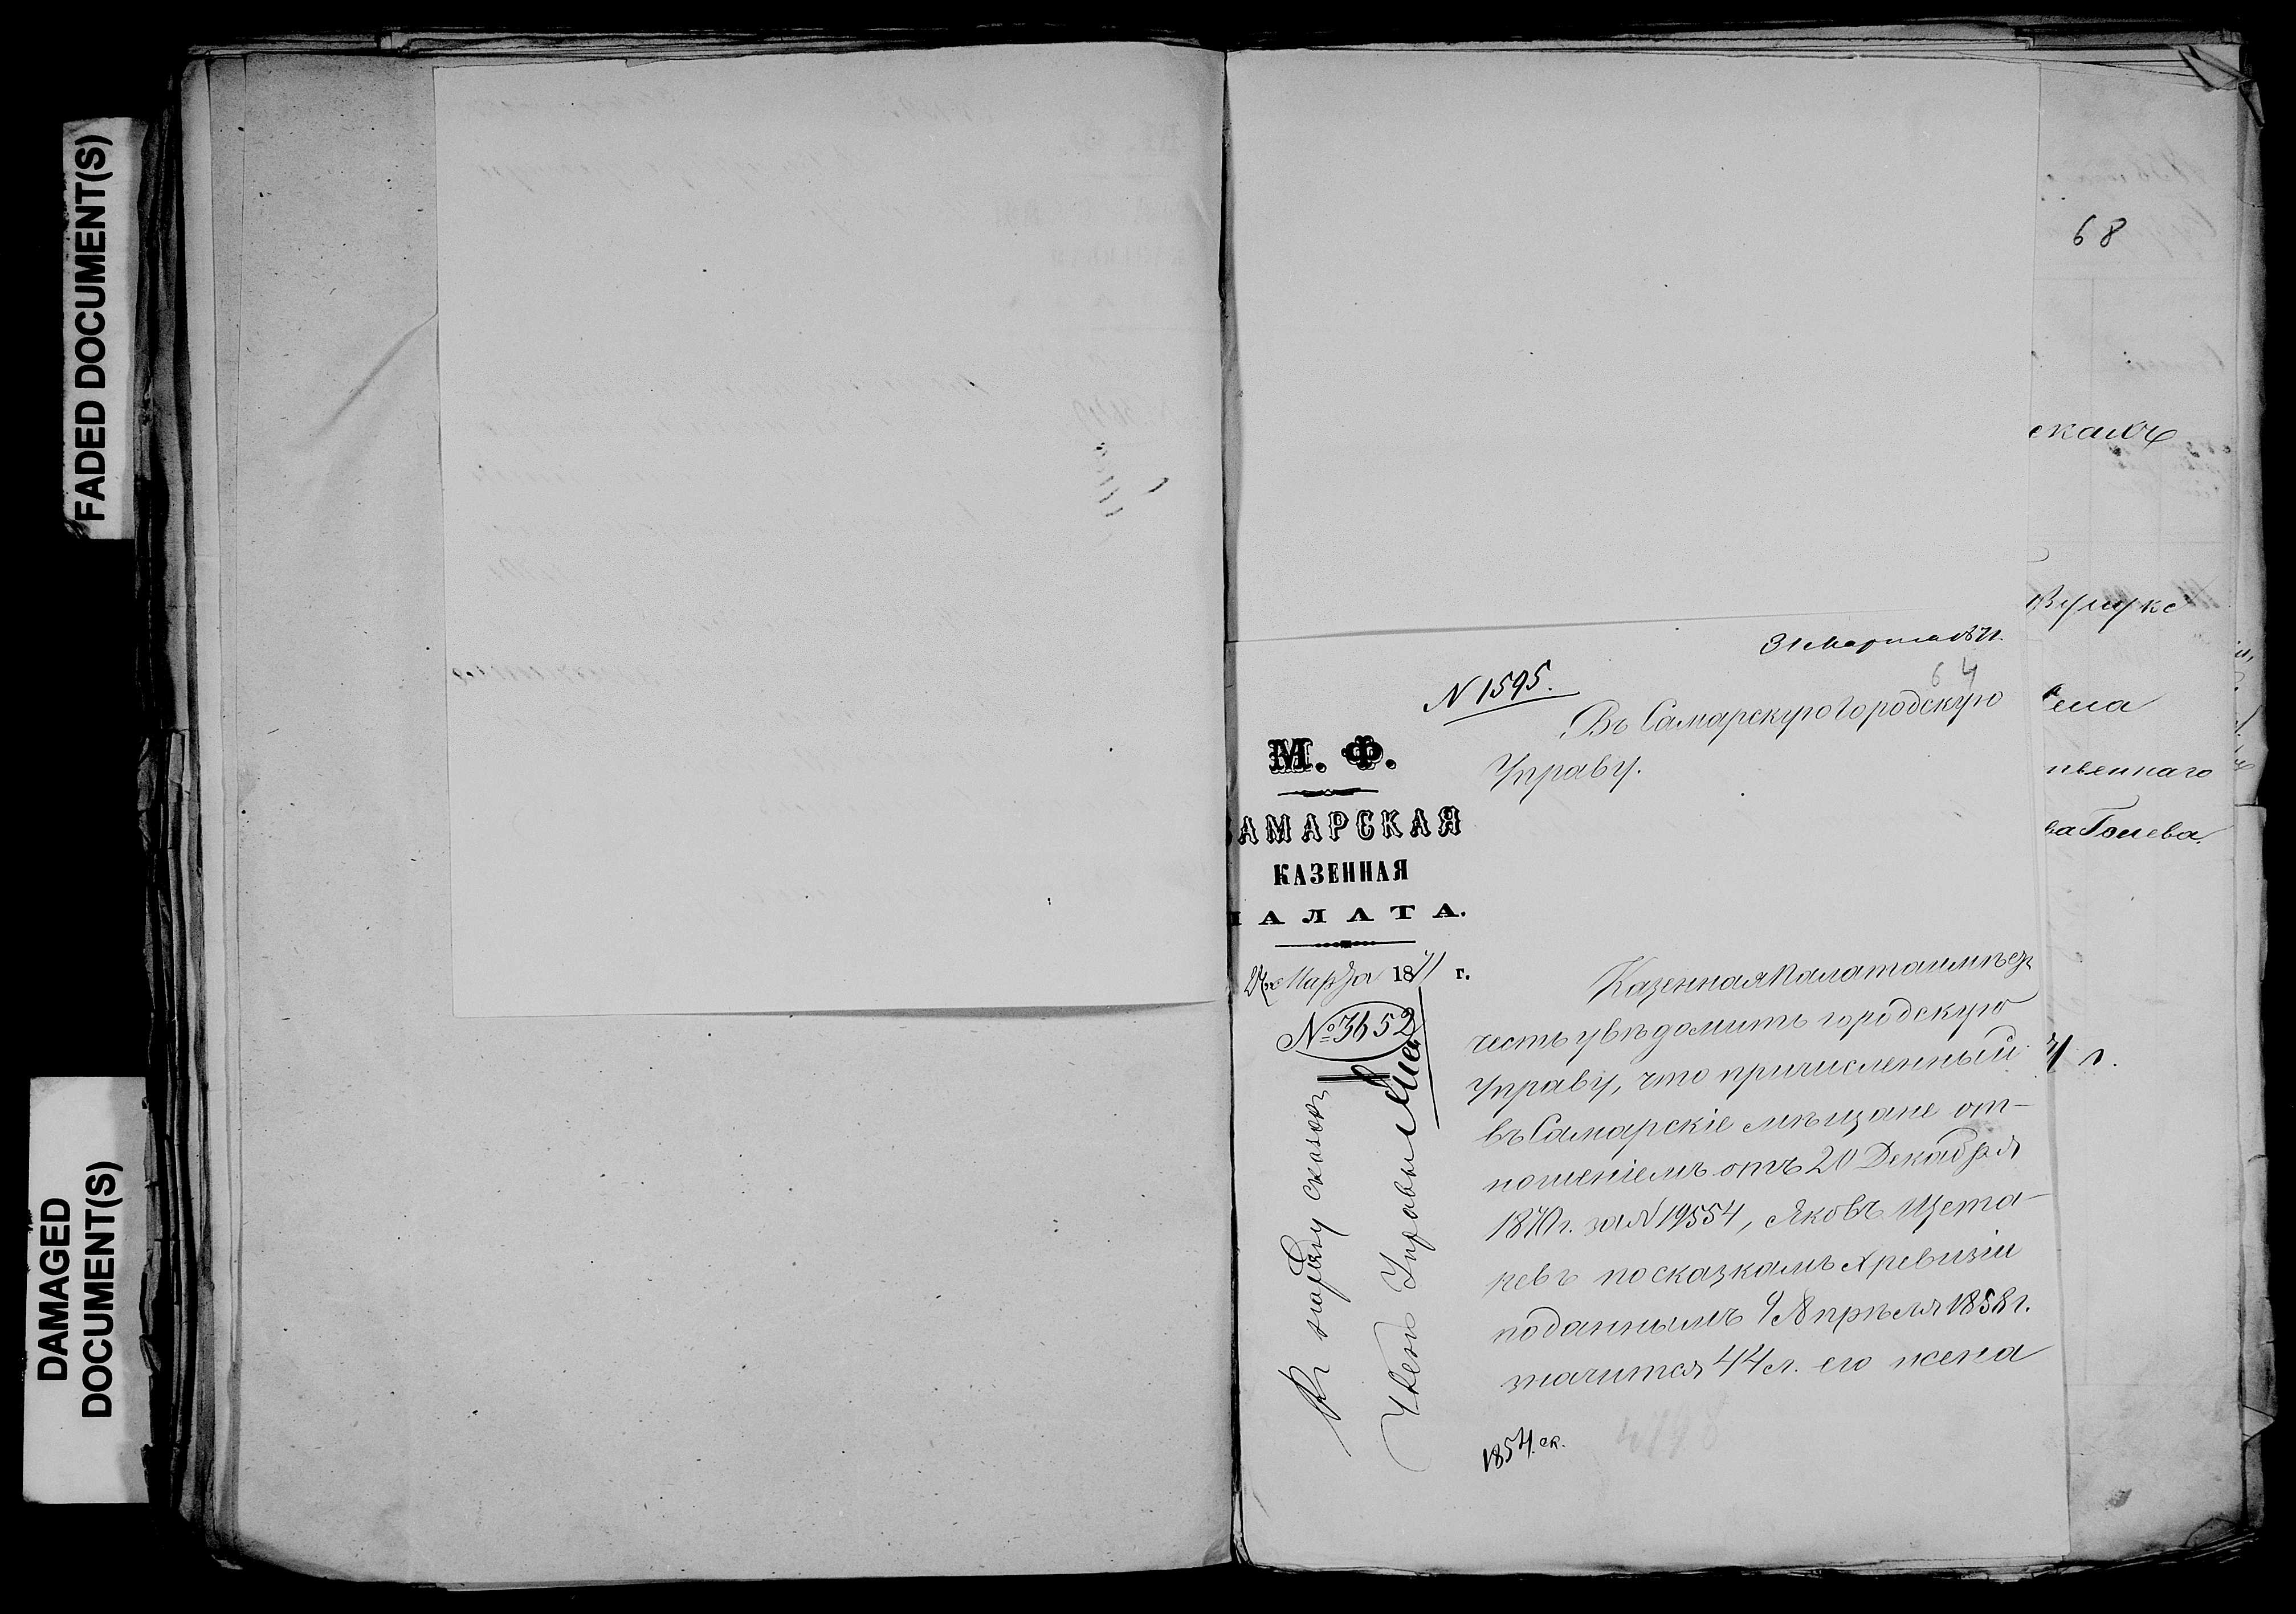 FADED DOCUMENT(S)
DAMAGED
DOCUMENT(S)
68
31 Марта 1871.
64
N 1595.
Въ Самарскую Городскую
Управу.
М. Ф.
САМАРСКАЯ
КАЗЕННАЯ
ПАЛАТА.
Марта 1871 г.
№ 3652
Къ наряду сказокъ
Членъ Управы
Казенная Палата имѣетъ
честь увѣдомить городскую
Управу, что причисленный
въ Самарскіе мѣщане от-
ношеніемъ отъ 20 Декабря
1870 г. за N 19554, Яковъ Щета-
ревъ по сказкамъ X ревизіи
поданнымъ 9 Апрѣля 1858 г.
значится 44 л. его жена
1854. ск.
твеннаго